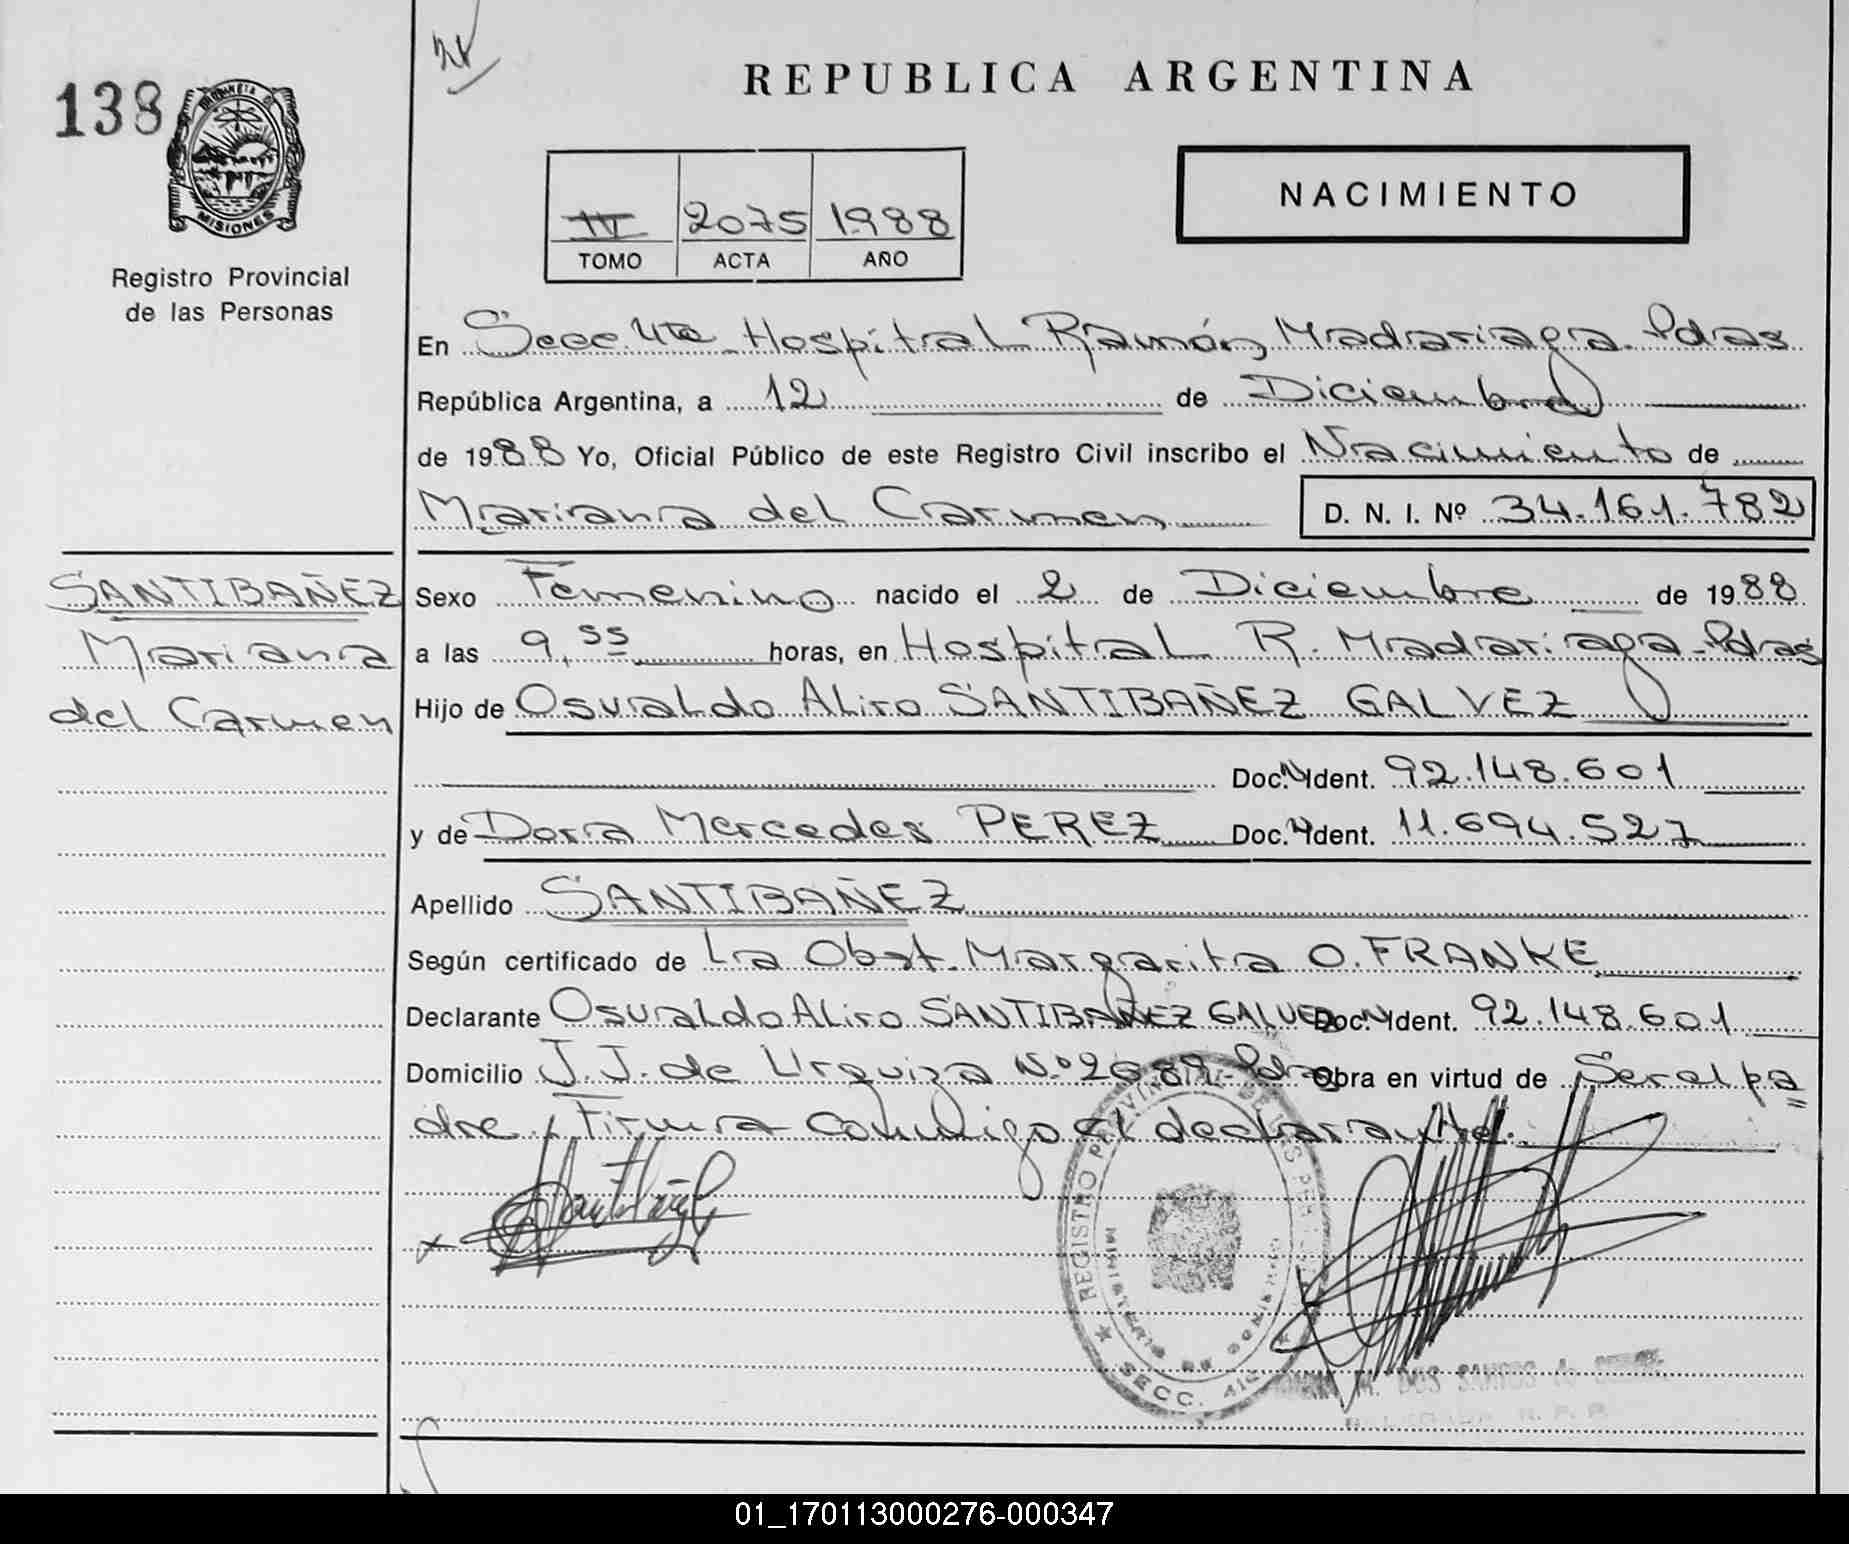 138
PROVINCIA DE
MISIONES
Registro Provincial
de las Personas
REPUBLICA ARGENTINA
NACIMIENTO
2075 1988
TOMO ACTA AÑO
En Secc 4ta Hospital Ramón Madariaga - Pdas
República Argentina, a 12 de Diciembre
de 1988 Yo, Oficial Público de este Registro Civil inscribo el Nacimiento de
Mariana del Carmen D. N. I. Nº 34.161.782
SANTIBAÑEZ
Mariana
del Carmen
Sexo Femenino nacido el 2 de Diciembre de 1988
a las 9,55 horas, en Hospital R. Madariaga - Pdas
Hijo de Osvaldo Aliro SANTIBAÑEZ GALVEZ
Doc. N Ident. 92.148.601
y de Dora Mercedes PEREZ Doc. N Ident. 11.694.527
Apellido SANTIBAÑEZ
Según certificado de La Obst. Margarita O. FRANKE
Declarante Osvaldo Aliro SANTIBAÑEZ GALVEZ Doc. N Ident. 92.148.601
Domicilio J.J. de Urquiza Nº 2689 - Pdas Obra en virtud de Ser el pa
dre, Firma conmigo el declarante.
REGISTRO PROVINCIAL DE LAS
MINISTERIO DE
SECC.
DOS SANTOS
01_170113000276-000347